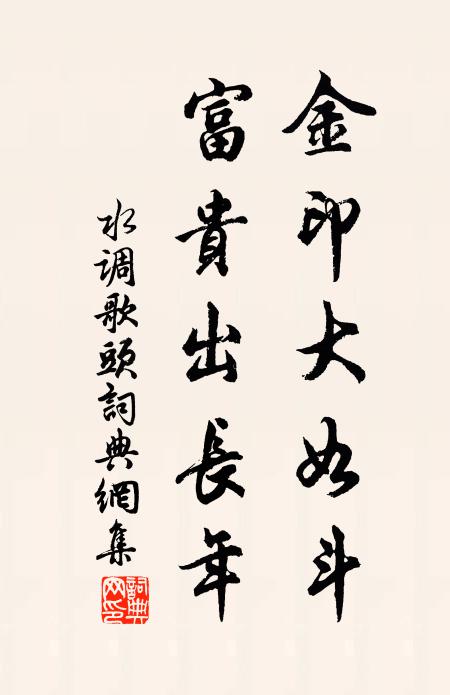 金印大如斗
富貴出長年
水调歌頭詞典網集
詞典网印